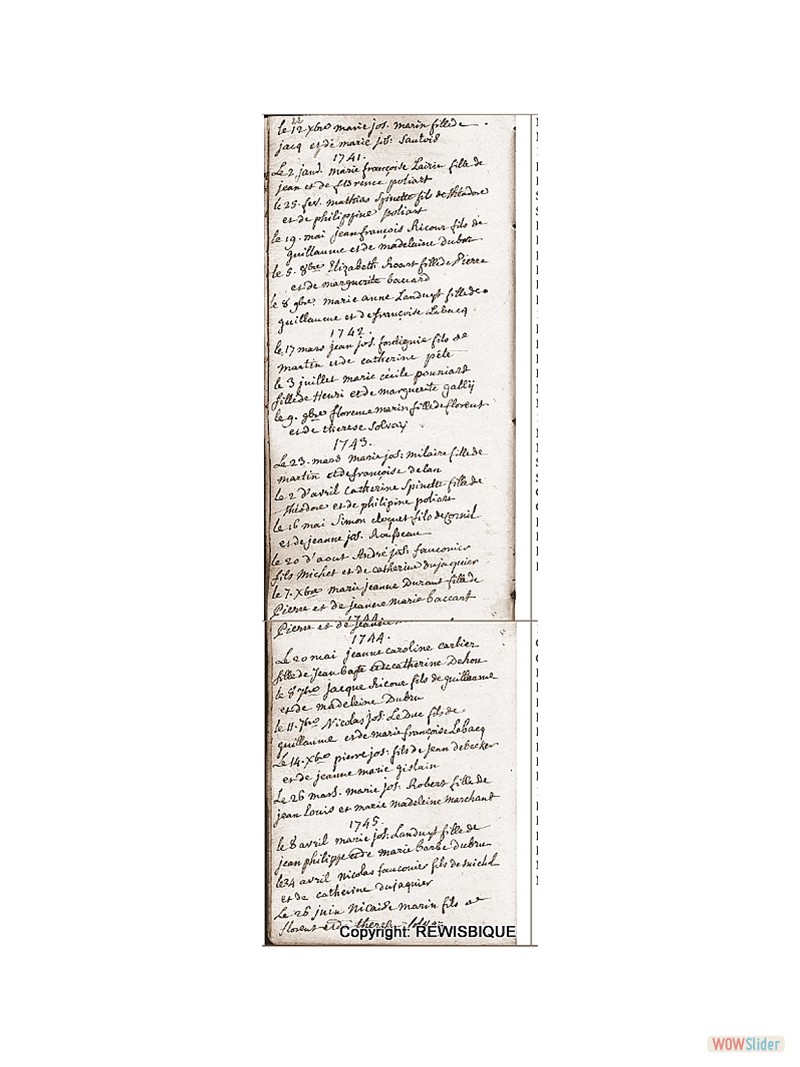 22
le 12 xbre marie jos: marin fille de
jacq et de marie jos: Sautois
1741.
Le 2 janv. marie françoise Lairin fille de
jean et de florence poliart
le 25. fev. mathias Spinette fils de théodore
et de philippine poliart
le 19. mai jean françois Ricour fils de
guillaume et de madeleine dubru
le 5. 8bre Elizabeth Roart fille de Pierre
et de marguerite baccard
le 8 9bre marie anne Landuyt fille de
guillaume et de françoise Labacq
1742.
le 17 mars jean jos. fontignie fils de
martin et de catherine péte
le 3 juillet marie cécile pouriard
fille de Henri et de marguerite gallij
le 9. 9bre florence marin fille de florent
et de therese Solvaij
1743.
Le 23. mars marie jos: milaire fille de
martin et de françoise delan
le 2 d'avril Catherine Spinette fille de
théodore et de philipine poliart
le 16 mai Simon cloquet fils de cornil
et de jeanne jos. Rousseau
le 20 d'aout André jos: fauconier
fils Michel et de catherine dujaquier
le 7. Xbre marie jeanne Durant fille de
Pierre et de jeanne marie baccart
Pierre et de jeanne
1744.
Le 20 mai jeanne caroline carlier
fille de Jean bapte et de catherine Dehou
le 8 7bre jacque Ricour fils de guilleaume
et de madeleine Dubru
le 11. 7bre Nicolas jos: Le Duc fils de
guillaume et de marie françoise Labacq
Le 14. Xbre pierre jos: fils de Jean debecker
et de jeanne marie gislain
Le 26 mars. marie jos: Robert fille de
jean Louis et marie madeleine marchant
1745.
le 8 avril marie jos: Landuyt fille de
jean philippe et de marie barbe dubru
le 24 avril nicolas fauconier fils de michel
et de catherine dujaquier
Le 26 juin Nicaise marin fils de
florent et de therese Solvai
Copyright: REWISBIQUE
WOWSlider